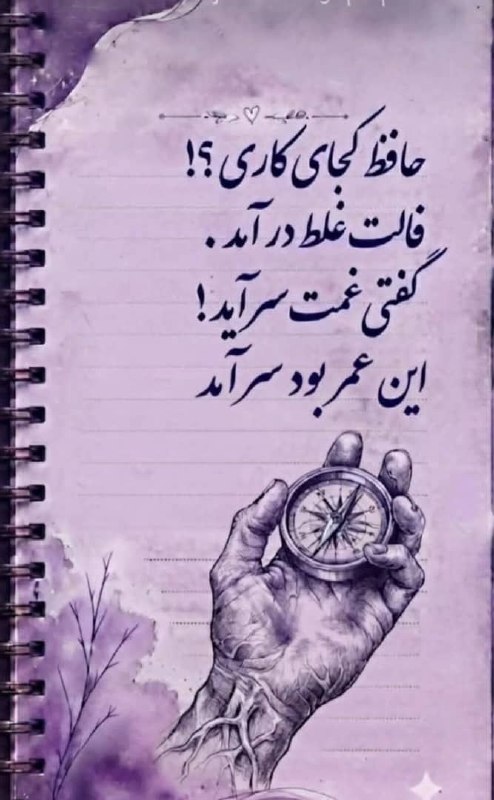 حافظ کجای کاری ؟!
فالت غلط درآمد .
گفتی غمت سرآید !
این عمر بود سرآمد